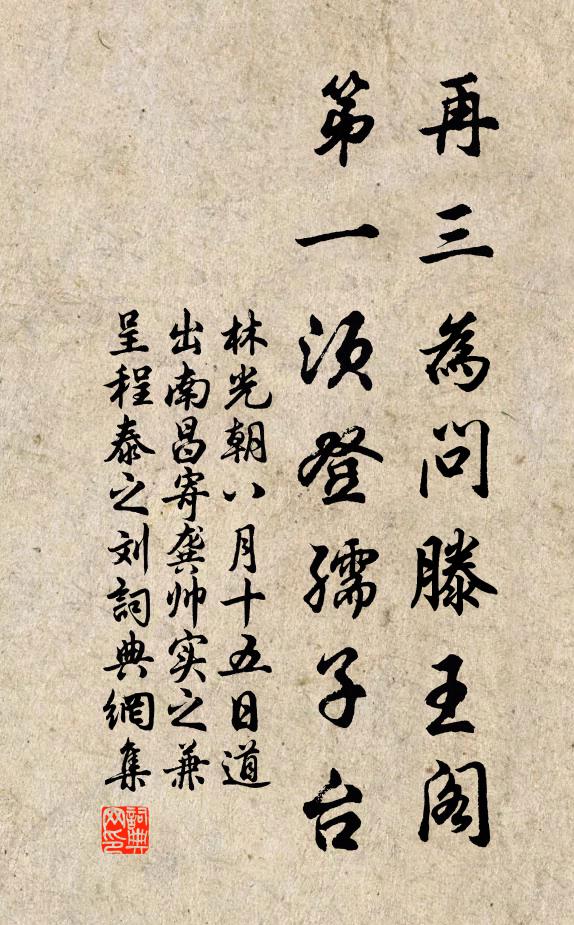 再三為問滕王閣
第一須登孺子台
林光朝八月十五日道
出南昌寄龔帅实之兼
呈程泰之刘詞典網集
詞典
网印